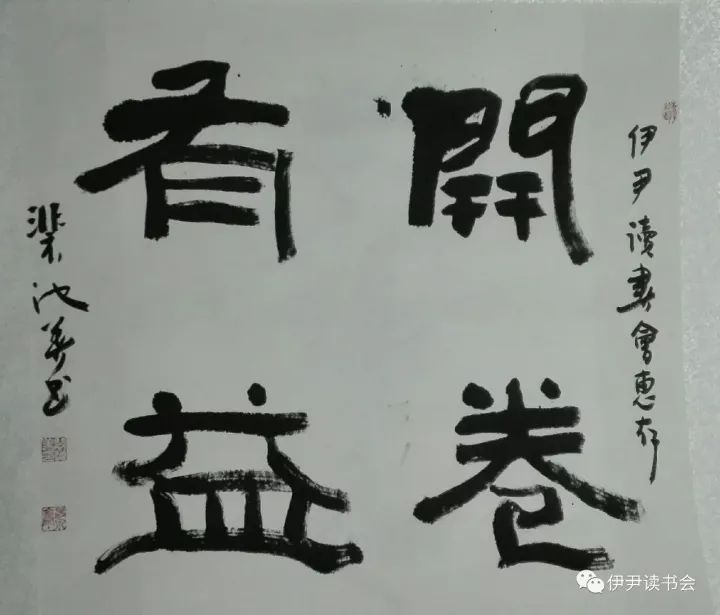 伊尹讀書會惠存
開卷
有益
梁池華书
伊尹读书会